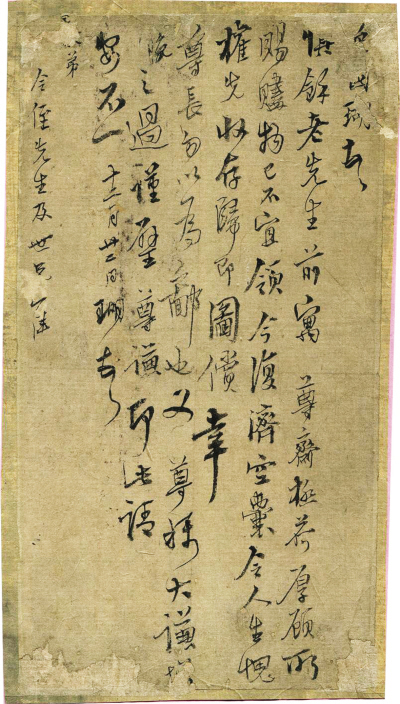 惟馀老先生前寓 尊齋極荷厚顧所
賜贐物已不宜領今復濟空囊令人生愧
權先收存歸即圖償 幸
尊長勿以為鄙也又 尊稱大謙
晚之過謹璧尊謙即此請
安不一 十二月廿二日
弟
令侄先生及世兄